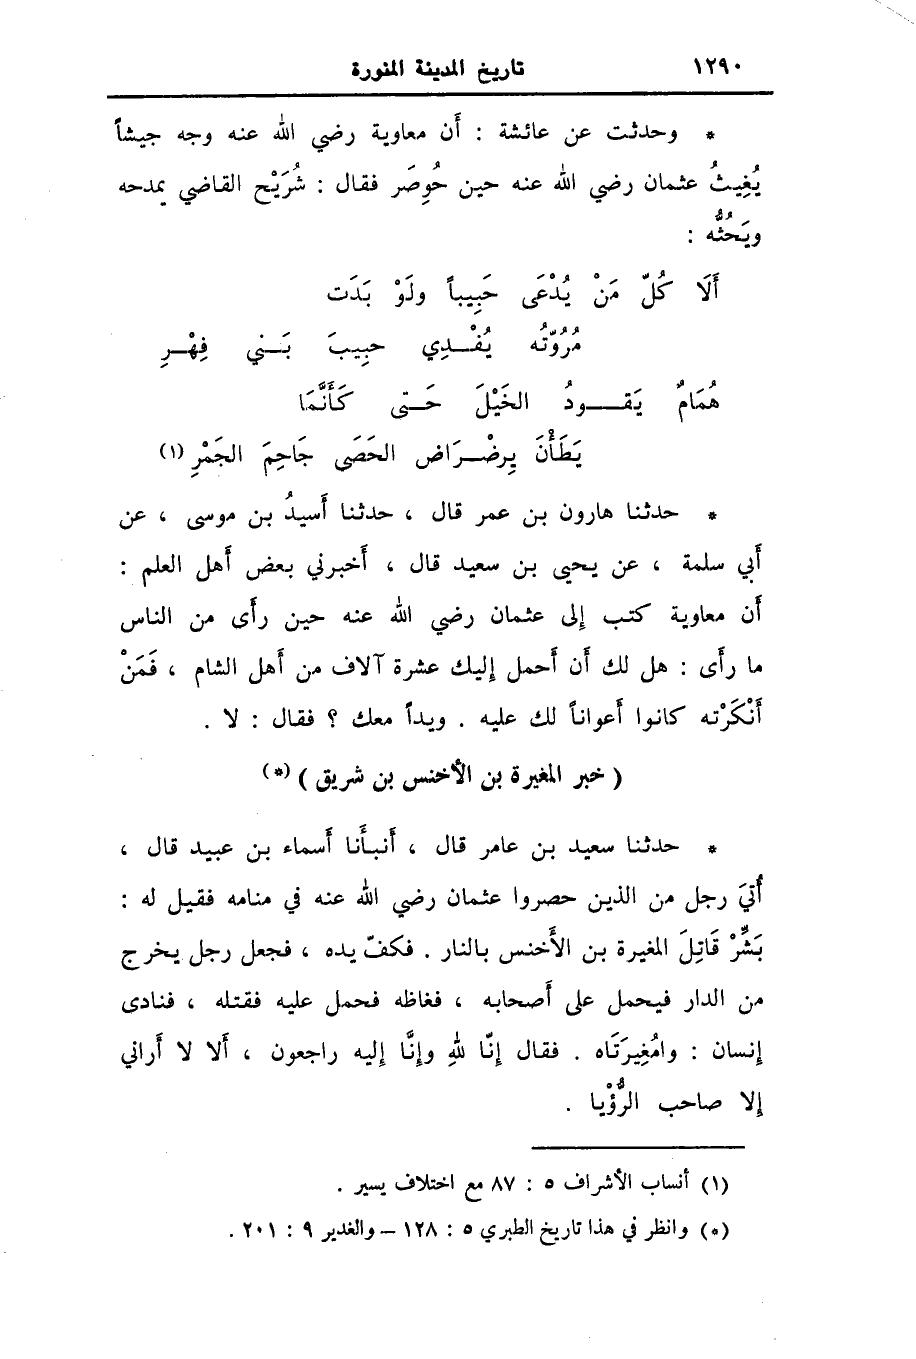 ١٢٩٠ تاريخ المدينة المنورة
* وحدثت عن عائشة : أن معاوية رضي الله عنه وجه جيشاً
يُغِيثُ عثمان رضي الله عنه حين حُوصِرَ فقال : شُرَيْح القاضي يمدحه
ويَحُثُّه :
أَلَا كُلّ مَنْ يُدْعَى حَبِيباً ولَوْ بَدَت
مُرُوّتُه يُفْـدِي حبِيبَ بَـني فِهْـرِ
هُمَامٌ يَقـودُ الخَيْلَ حَـتى كَأَنَّمَا
يَطَأْنَ بِرضْـرَاض الحَصَى جَاحِمَ الجَمْرِ (١)
* حدثنا هارون بن عمر قال ، حدثنا أسيدُ بن موسى ، عن
أبي سلمة ، عن يحيى بن سعيد قال ، أخبرني بعض أهل العلم :
أن معاوية كتب إلى عثمان رضي الله عنه حين رأى من الناس
ما رأى : هل لك أن أحمل إليك عشرة آلاف من أهل الشام ، فَمَنْ
أَنْكَرْته كانوا أعواناً لك عليه . ويداً معك ؟ فقال : لا .
( خبر المغيرة بن الأخنس بن شريق ) (*)
* حدثنا سعيد بن عامر قال ، أنبأنا أسماء بن عبيد قال ،
أُتيَ رجل من الذين حصروا عثمان رضي الله عنه في منامه فقيل له :
بَشِّرْ قَاتِلَ المغيرة بن الأخنس بالنار . فكفّ يده ، فجعل رجل يخرج
من الدار فيحمل على أصحابه ، فغاظه فحمل عليه فقتله ، فنادى
إنسان : وامُغِيرَتَاه . فقال إنّا للهِ وإنَّا إليه راجعون ، ألا لا أراني
إلا صاحب الرُّؤْيا .
(١) أنساب الأشراف ٥ : ٨٧ مع اختلاف يسير .
(*) وانظر في هذا تاريخ الطبري ٥ : ١٢٨ – والغدير ٩ : ٢٠١ .